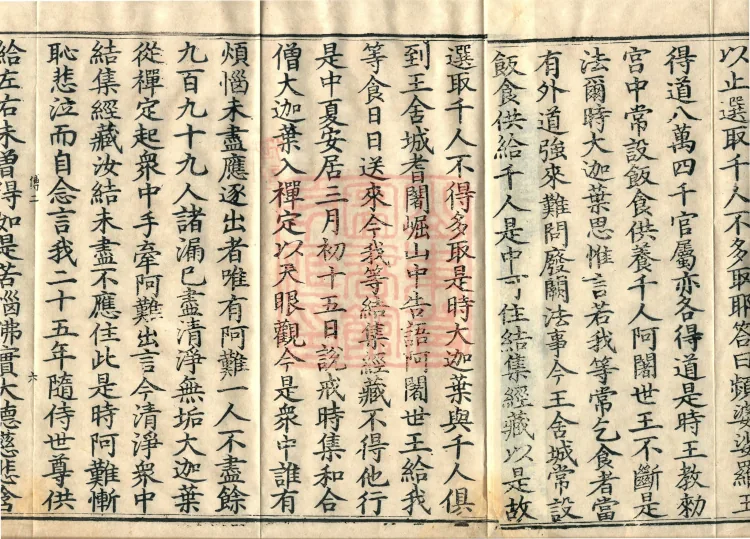 以止選取千人不多取耶答曰頻婆娑羅王
得道八萬四千官屬亦各得道是時王教勑
宮中常設飯食供養千人阿闍世王不斷是
法爾時大迦葉思惟言若我等常乞食者當
有外道強來難問廢闕法事今王舍城常設
飯食供給千人是中可住結集經藏以是故
選取千人不得多取是時大迦葉與千人俱
到王舍城耆闍崛山中告語阿闍世王給我
等食日日送來今我等結集經藏不得他行
是中夏安居三月初十五日說戒時集和合
僧大迦葉入禪定以天眼觀今是衆中誰有
煩惱未盡應逐出者唯有阿難一人不盡餘
九百九十九人諸漏已盡清淨無垢大迦葉
從禪定起衆中手牽阿難出言今清淨衆中
結集經藏汝結未盡不應住此是時阿難慚
恥悲泣而自念言我二十五年隨侍世尊供
給左右未曾得如是苦惱佛實大德慈悲含